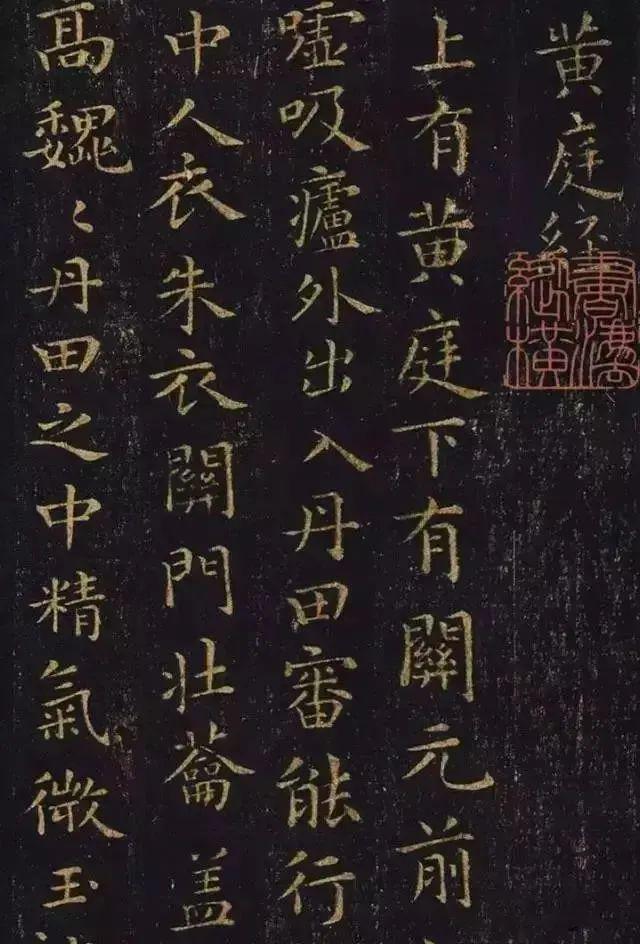 黄庭經
上有黄庭下有關元前
嘘吸廬外出入丹田審能行
中人衣朱衣關門壯蘥盖
高巍〻丹田之中精氣微玉